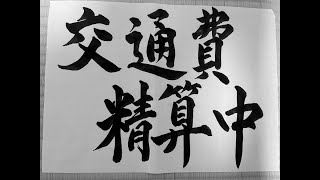 交通費
精算中